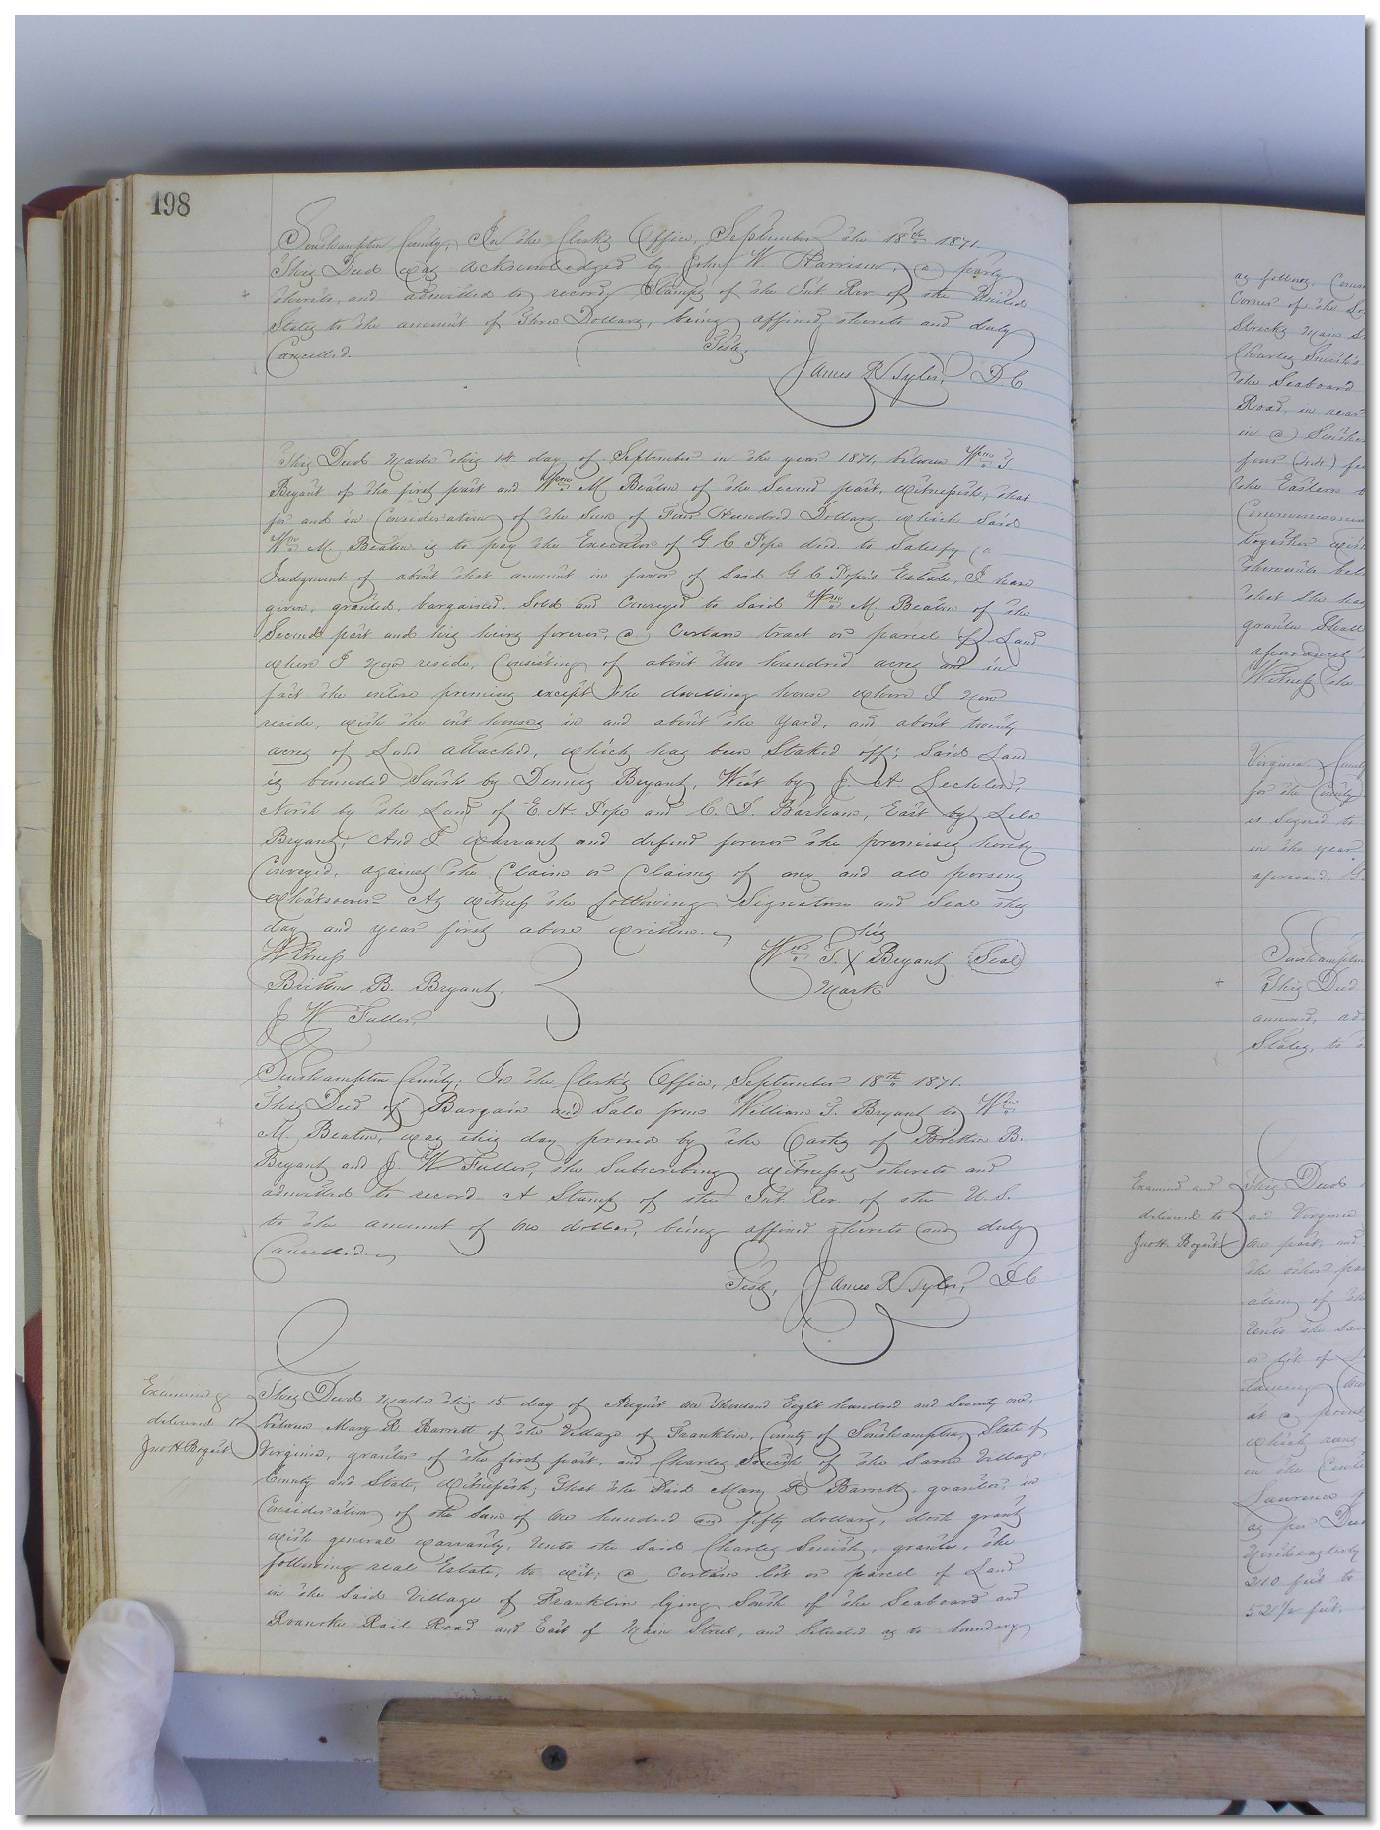 198
Southampton County, In the Clerk's Office, September the 18th 1871.
This Deed was acknowledged by John W Harrison, a party
thereto, and admitted to record, Stamps of the Int Rev of the United
States to the amount of Three Dollars, being affixed thereto and duly
Cancelled. Teste,
James R Tyler, D.C
This Deed made this 14 day of September in the year 1871, between Wm T.
Bryant of the first part and Wm M. Beaton of the Second part, witnesseth, that
for and in Consideration of the Sum of Four Hundred Dollars which Said
Wm M. Beaton is to pay the Executor of G C Pope decd. to Satisfy a
Judgment of about that amount in favor of Said G C Pope's Estate, I have
given, granted, bargained, Sold and Conveyed to Said Wm M. Beaton of the
Second part and his heirs forever, a Certain tract or parcel of Land
where I now reside, Consisting of about two hundred acres and in
fact the entire premises except the dwelling house where I now
reside, with the out houses in and about the yard, and about twenty
acres of Land attached, which has been Staked off; Said Land
is bounded South by Dennis Bryant, West by J. A.
North by the Land of E. H. Pope and C. D. Barham, East by
Bryant, And I warrant and defend forever the premises hereby
Conveyed, against the Claim or Claims of any and all persons
whatsoever. As witness the following Signature and Seal this
day and year first above written.
Witness
his
Wm T. X Bryant Seal
mark
Britton B. Bryant.
J W Fuller.
Southampton County; In the Clerk's Office, September 18th 1871.
This Deed of Bargain and Sale from William T. Bryant to Wm
M. Beaton, was this day proved by the Oaths of Britton B.
Bryant and J. W Fuller, the Subscribing witnesses thereto and
admitted to record. A Stamp of the Int. Rev. of the U.S.
to the amount of one dollar, being affixed thereto and duly
Cancelled.
Teste, James R Tyler, D.C
Examined &
delivered to
Jno H. Bogart
This Deed made this 15 day of August one thousand Eight hundred and Seventy one,
between Mary R. Barrett of the Village of Franklin, County of Southampton, State of
Virginia, grantor of the first part, and Charles Smith of the Same Village,
County and State, Witnesseth; That the Said Mary R Barrett, grantor, in
Consideration of the Sum of one hundred and fifty dollars, doth grant
with general warranty, unto the Said Charles Smith, grantee, the
following real Estate, to wit; a Certain lot or parcel of Land
in the Said Village of Franklin lying South of the Seaboard and
Roanoke Rail Road and East of Main Street, and Situated as to boundary
as follows,
Corner of the
Streets Main
Charles Smith's
the Seaboard
Road, in
in a
four
the Eastern
together with
that She has
grantee Shall
Witness the
Virginia County
for the County
is Signed to
in the year
aforesaid.
Southampton
This Deed
annexed,
States, to
Examined and
delivered to
Jno H. Bogart
This Deed
and Virginia
one part, and
the other
of
unto the
or lot of
at a point
which runs
in the
Lawrence
as per Deed
210 feet to
52 1/2 feet,